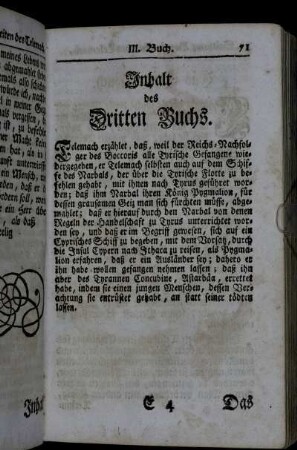 III. Buch. 71
Inhalt
des
Dritten Buchs.
Telemach erzählet, daß, weil der Reichs-Nachfol-
ger des Boccoris alle Tyrische Gefangene wie-
dergegeben, er Telemach selbsten auch auf dem Schif-
fe des Narbals, der über die Tyrische Flotte zu be-
fehlen gehabt, mit ihnen nach Tyrus geführet wor-
den; daß ihm Narbal ihren König Pygmalion, für
dessen grausamen Geiz man sich fürchten müsse, ab-
gemahlet; daß er hierauf durch den Narbal von denen
Regeln der Handelschaft zu Tyrus unterrichtet wor-
den sey, und daß er im Begriff gewesen, sich auf ein
Cyprisches Schiff zu begeben, mit dem Vorsatz, durch
die Insul Cypern nach Ithaca zu reisen, als Pygma-
lion erfahren, daß er ein Ausländer sey; dahero er
ihn habe wollen gefangen nehmen lassen; daß ihn
aber des Tyrannen Concubine, Astarbäa, errettet
habe, indem sie einen jungen Menschen, dessen Ver-
achtung sie entrüstet gehabt, an statt seiner tödten
lassen.
E 4 Das
Inhalt